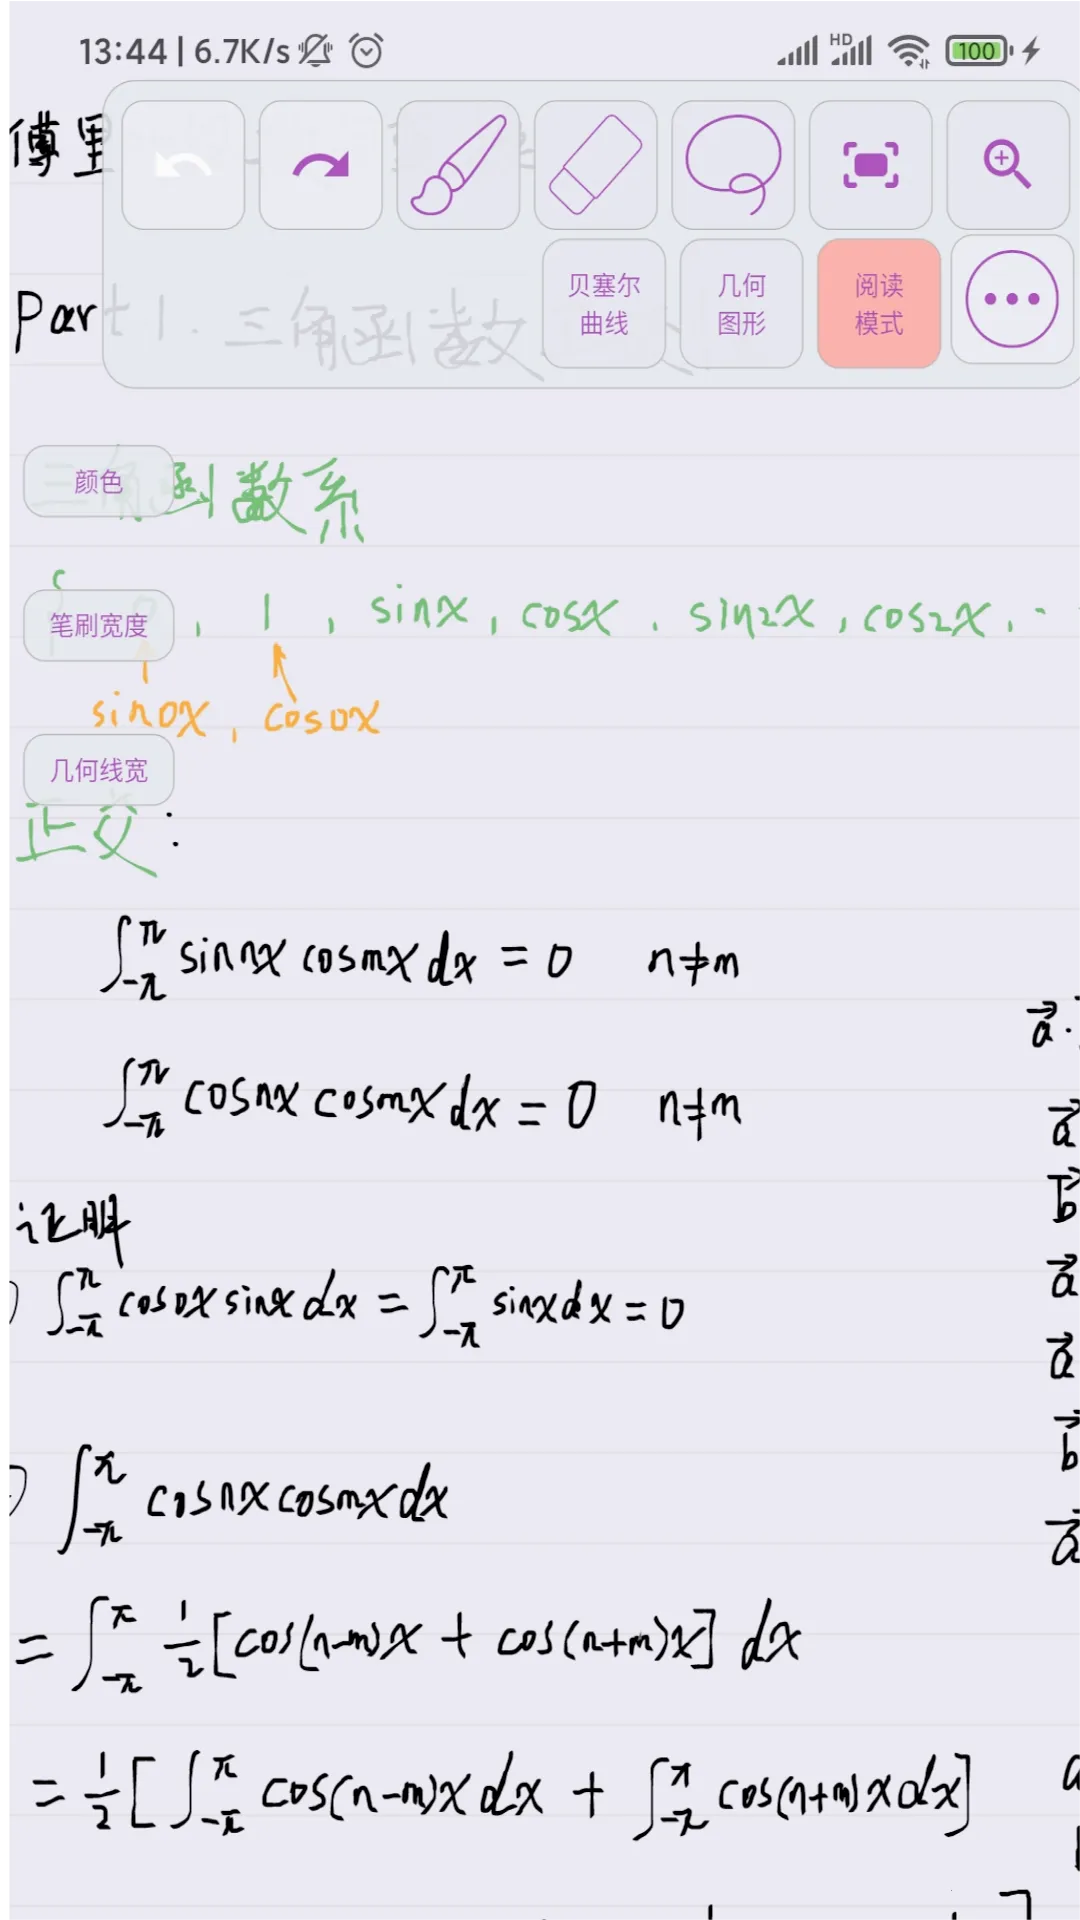 13:44 | 6.7K/s HD 100
傅里
贝塞尔曲线 几何图形 阅读模式
Part 1. 三角函数
颜色
三角函数系
笔刷宽度
{ 0, 1, sinx, cosx, sin2x, cos2x, ..
sin0x, cos0x
几何线宽
正交:
∫_{-π}^{π} sin nx cos mx dx = 0 n≠m
a⃗ ·
∫_{-π}^{π} cos nx cos mx dx = 0 n≠m
a⃗
b⃗
证明
a⃗
) ∫_{-π}^{π} cos0x sinx dx = ∫_{-π}^{π} sinx dx = 0
a⃗
b⃗
) ∫_{-π}^{π} cos nx cos mx dx
a⃗
= ∫_{-π}^{π} 1/2 [cos(n-m)x + cos(n+m)x] dx
= 1/2 [∫_{-π}^{π} cos(n-m)x dx + ∫_{-π}^{π} cos(n+m)x dx]